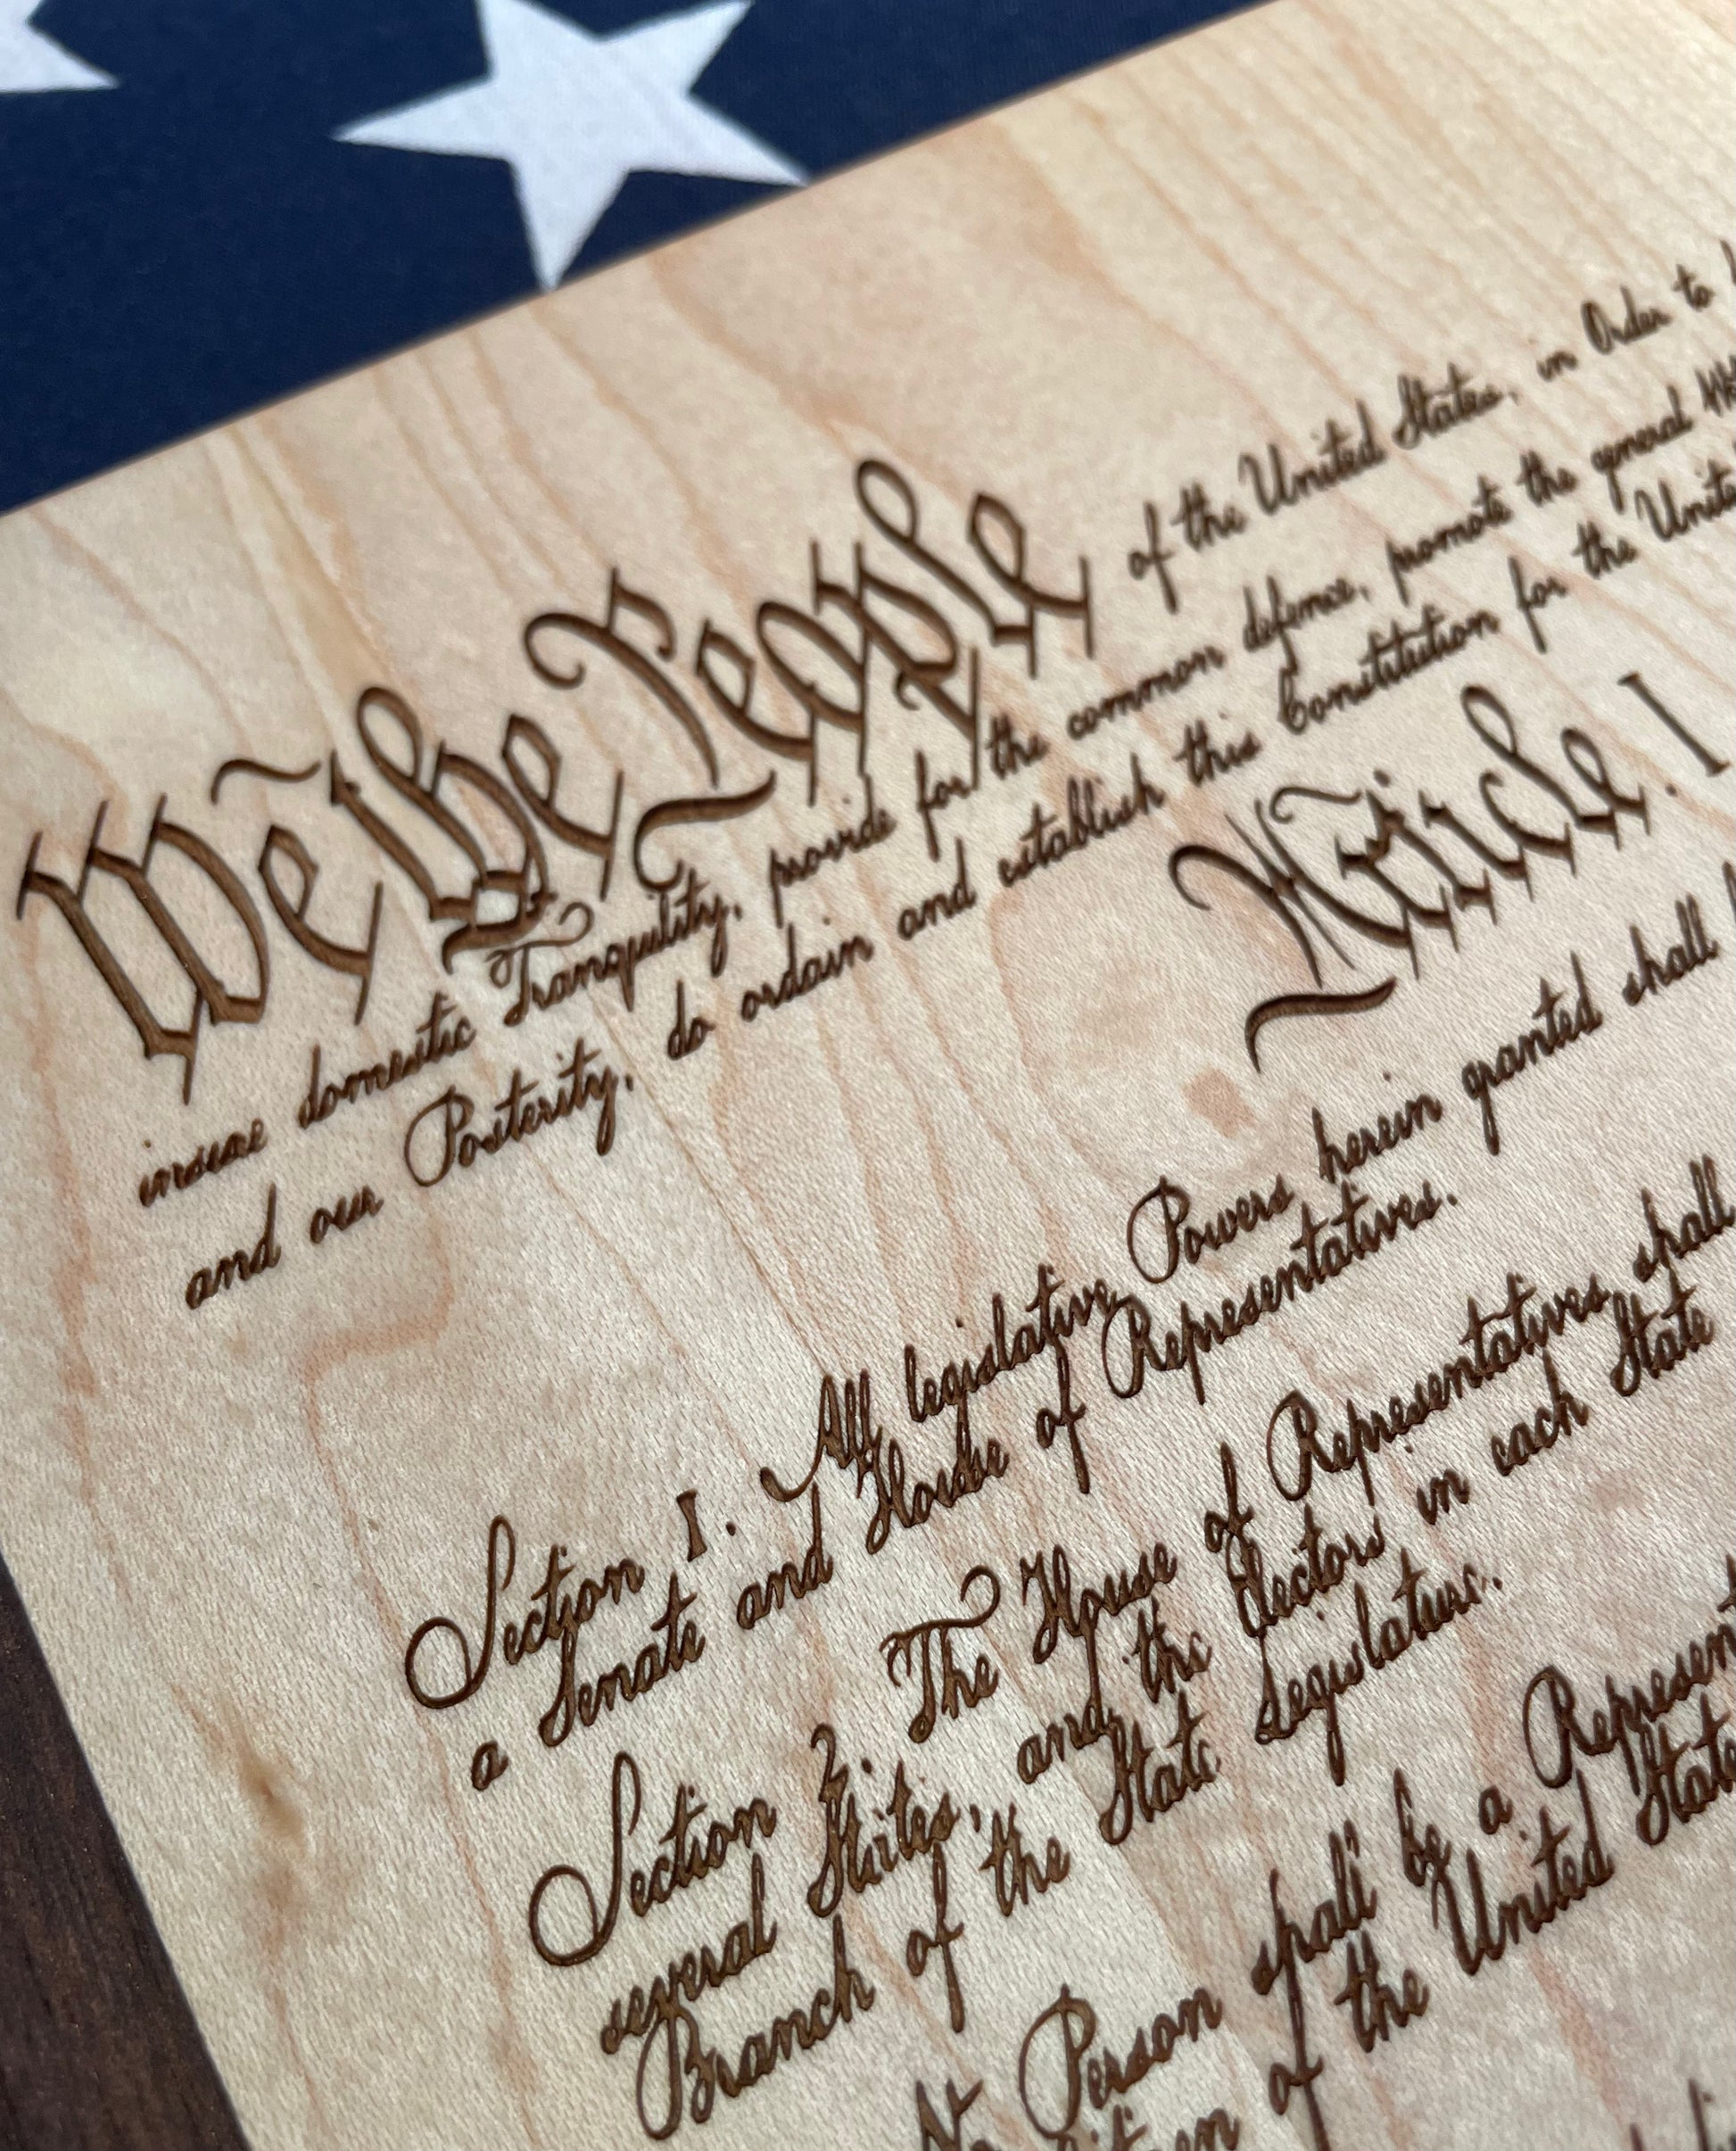 We the People of the United States, in Order to
insure domestic Tranquility, provide for the common defence, promote the general
and our Posterity, do ordain and establish this Constitution for the
Article. I
Section 1. All legislative Powers herein granted shall
a Senate and House of Representatives.
Section 2. The House of Representatives shall
several States, and the Electors in each State
Branch of the State Legislature.
No Person shall be a
of the United